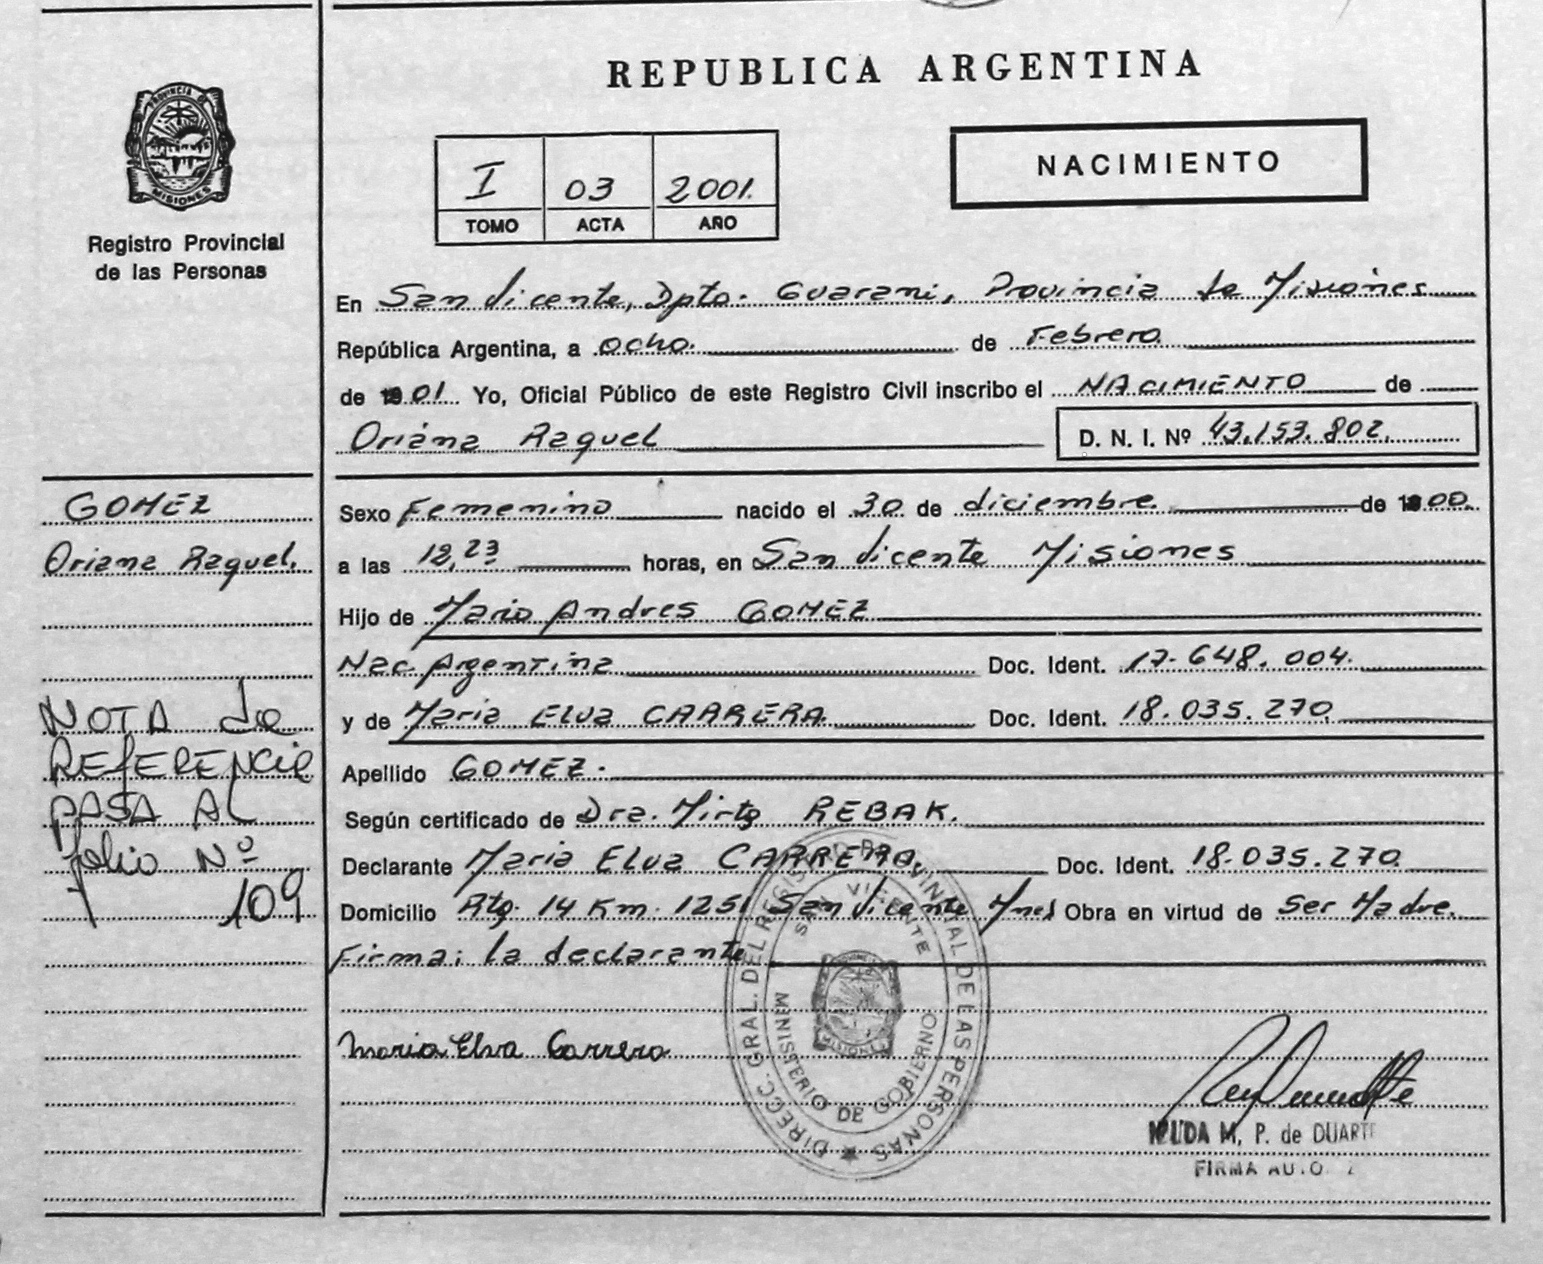 REPUBLICA ARGENTINA
PROVINCIA D
MISIONES
Registro Provincial
de las Personas
I 03 2001.
TOMO ACTA AÑO
NACIMIENTO
En San Vicente, Dpto. Guarani, Provincia de Misiones
República Argentina, a ocho. de Febrero
de 01 Yo, Oficial Público de este Registro Civil inscribo el NACIMIENTO de
Oriana Raquel D. N. I. Nº 43.153.802.
GOMEZ
Oriana Raquel.
Sexo Femenino nacido el 30 de diciembre. de 00.
a las 12,23 horas, en San Vicente Misiones
Hijo de Mario Andres GOMEZ
Nac. Argentina Doc. Ident. 17.648.004.
y de Maria Elva CARRERA Doc. Ident. 18.035.270
Apellido GOMEZ.
Según certificado de Dra. Mirta REBAK.
Declarante Maria Elva CARRERA. Doc. Ident. 18.035.270
Domicilio Rta. 14 Km. 1251 San Vicente Mnes Obra en virtud de ser Madre.
Firma: la declarante
NOTA de
REFERENCIA
PASA AL
folio Nº
109
Maria Elva Carrera
DIRECC. GRAL. DEL REGISTRO PROVINCIAL DE LAS PERSONAS
SAN VICENTE
MISIONES
MINISTERIO DE GOBIERNO
M. P. de DUARTE
FIRMA